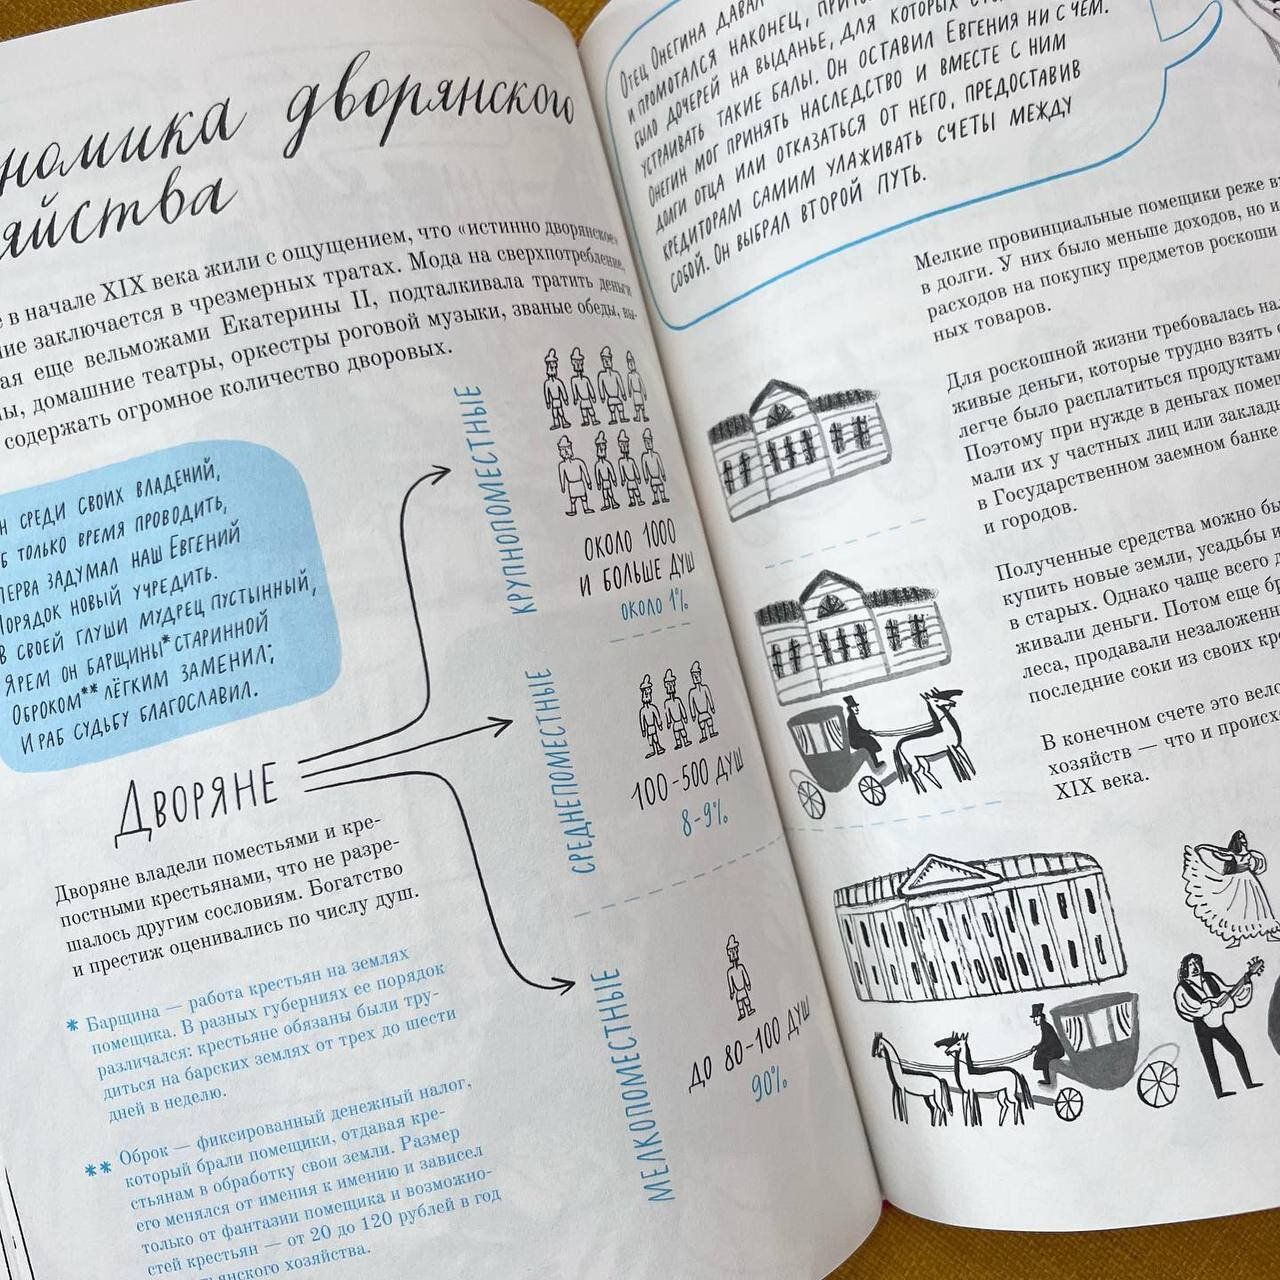 дворянского
е в начале XIX века жили с ощущением, что «истинно дворянское»
ние заключается в чрезмерных тратах. Мода на сверхпотребление,
ая еще вельможами Екатерины II, подталкивала тратить деньги
ы, домашние театры, оркестры роговой музыки, званые обеды, вы-
содержать огромное количество дворовых.
среди своих владений,
только время проводить,
задумал наш Евгений
порядок новый учредить.
В своей глуши мудрец пустынный,
Ярем он барщины* старинной
Оброком** лёгким заменил;
И раб судьбу благославил.
Дворяне
Дворяне владели поместьями и кре-
постными крестьянами, что не разре-
шалось другим сословиям. Богатство
и престиж оценивались по числу душ.
* Барщина — работа крестьян на землях
помещика. В разных губерниях ее порядок
различался: крестьяне обязаны были тру-
диться на барских землях от трех до шести
дней в неделю.
** Оброк — фиксированный денежный налог,
который брали помещики, отдавая кре-
стьянам в обработку свои земли. Размер
его менялся от имения к имению и зависел
только от фантазии помещика и возможно-
стей крестьян — от 20 до 120 рублей в год
хозяйства.
крупнопоместные
около 1000
и больше душ
около 1%
среднепоместные
100-500 душ
8-9%
мелкопоместные
до 80-100 душ
90%
Отец Онегина давал
и промотался наконец,
было дочерей на выданье, для которых
устраивать такие балы. Он оставил Евгения ни с чем.
Онегин мог принять наследство и вместе с ним
долги отца или отказаться от него, предоставив
кредиторам самим улаживать счеты между
собой. Он выбрал второй путь.
Мелкие провинциальные помещики реже
в долги. У них было меньше доходов, но и
расходов на покупку предметов роскоши
ных товаров.
Для роскошной жизни требовалась
живые деньги, которые трудно взять
легче было расплатиться продуктами
Поэтому при нужде в деньгах
мали их у частных лиц или
в Государственном заемном банке
и городов.
Полученные средства можно
купить новые земли, усадьбы и
в старых. Однако чаще всего
живали деньги. Потом еще
леса, продавали
последние соки из своих
В конечном счете это
хозяйств — что и
XIX века.